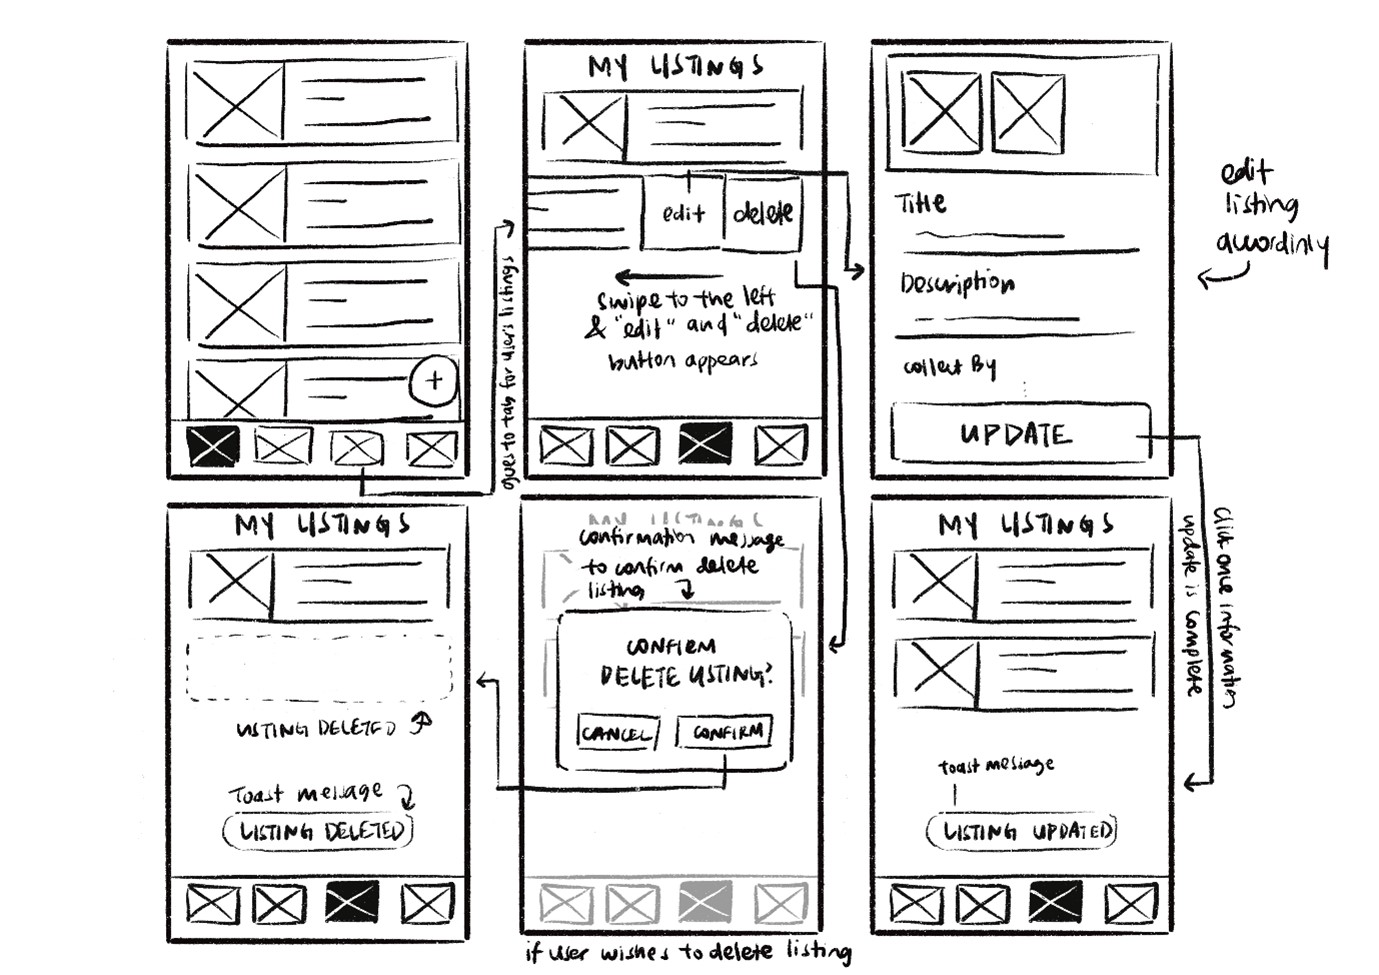 +
goes to tab for users listings
MY LISTINGS
edit
delete
swipe to the left
& "edit" and "delete"
button appears
Title
Description
collect By
UPDATE
edit
listing
accordinly
click once information
update is complete
MY LISTINGS
LISTING DELETED
Toast message
LISTING DELETED
MY LISTINGS
confirmation message
to confirm delete
listing
CONFIRM
DELETE LISTING?
CANCEL
CONFIRM
if user wishes to delete listing
MY LISTINGS
toast message
LISTING UPDATED